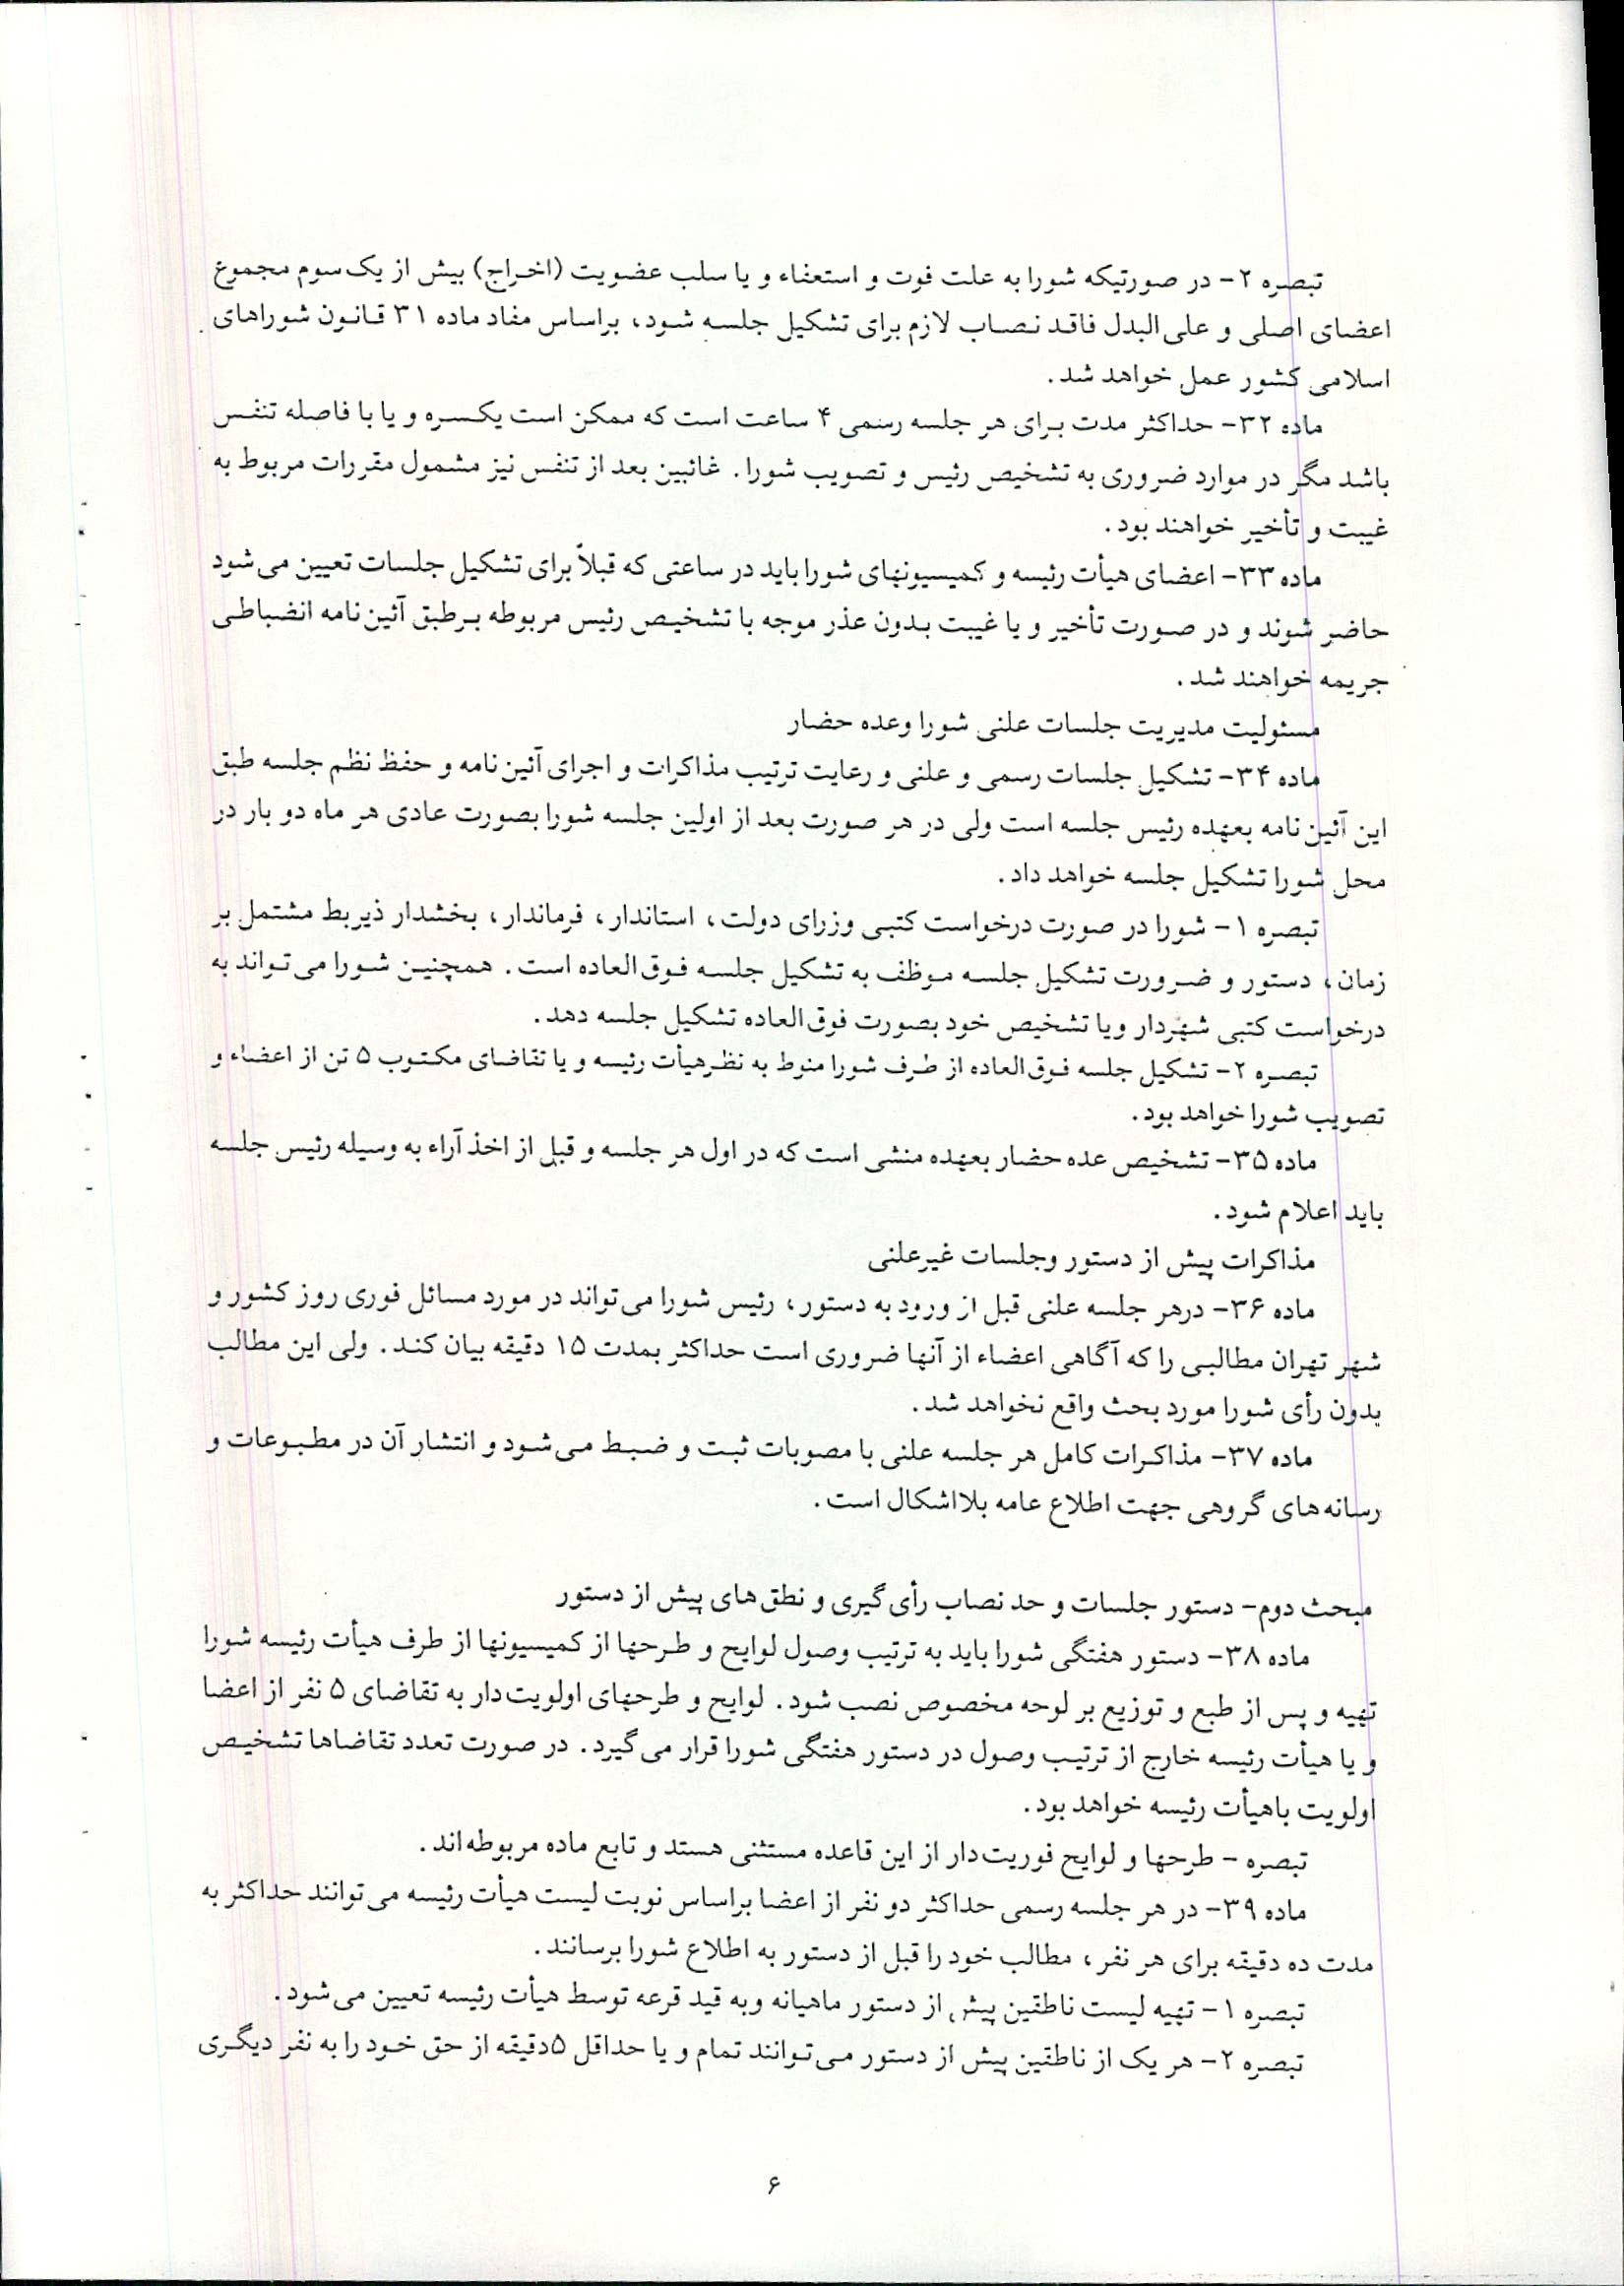 تبصره ۲- در صورتیکه شورا به علت فوت و استعفاء و یا سلب عضویت (اخراج) بیش از یک سوم مجموع
اعضای اصلی و علی البدل فاقد نصاب لازم برای تشکیل جلسه شود، براساس مفاد ماده ۳۱ قانون شوراهای
اسلامی کشور عمل خواهد شد.
ماده ۳۲- حداکثر مدت برای هر جلسه رسمی ۴ ساعت است که ممکن است یکسره و یا با فاصله تنفس
باشد مگر در موارد ضروری به تشخیص رئیس و تصویب شورا. غائبین بعد از تنفس نیز مشمول مقررات مربوط به
غیبت و تأخیر خواهند بود.
ماده ۳۳- اعضای هیأت رئیسه و کمیسیونهای شورا باید در ساعتی که قبلاً برای تشکیل جلسات تعیین می شود
حاضر شوند و در صورت تأخیر و یا غیبت بدون عذر موجه با تشخیص رئیس مربوطه برطبق آئین نامه انضباطی
جریمه خواهند شد.
مسئولیت مدیریت جلسات علنی شورا وعده حضار
ماده ۳۴- تشکیل جلسات رسمی و علنی و رعایت ترتیب مذاکرات و اجرای آئین نامه و حفظ نظم جلسه طبق
این آئین نامه بعهده رئیس جلسه است ولی در هر صورت بعد از اولین جلسه شورا بصورت عادی هر ماه دو بار در
محل شورا تشکیل جلسه خواهد داد.
تبصره ۱- شورا در صورت درخواست کتبی وزرای دولت، استاندار، فرماندار، بخشدار ذیربط مشتمل بر
زمان، دستور و ضرورت تشکیل جلسه موظف به تشکیل جلسه فوق العاده است. همچنین شورا می تواند به
درخواست کتبی شهردار ویا تشخیص خود بصورت فوق العاده تشکیل جلسه دهد.
تبصره ۲- تشکیل جلسه فوق العاده از طرف شورا منوط به نظرهیأت رئیسه و یا تقاضای مکتوب ۵ تن از اعضاء و
تصویب شورا خواهد بود.
ماده ۳۵- تشخیص عده حضار بعهده منشی است که در اول هر جلسه و قبل از اخذ آراء به وسیله رئیس جلسه
باید اعلام شود.
مذاکرات پیش از دستور وجلسات غیرعلنی
ماده ۳۶- درهر جلسه علنی قبل از ورود به دستور، رئیس شورا می تواند در مورد مسائل فوری روز کشور و
شهر تهران مطالبی را که آگاهی اعضاء از آنها ضروری است حداکثر بمدت ۱۵ دقیقه بیان کند. ولی این مطالب
بدون رأی شورا مورد بحث واقع نخواهد شد.
ماده ۳۷- مذاکرات کامل هر جلسه علنی با مصوبات ثبت و ضبط می شود و انتشار آن در مطبوعات و
رسانه های گروهی جهت اطلاع عامه بلااشکال است.
مبحث دوم- دستور جلسات و حد نصاب رأی گیری و نطق های پیش از دستور
ماده ۳۸- دستور هفتگی شورا باید به ترتیب وصول لوایح و طرحها از کمیسیونها از طرف هیأت رئیسه شورا
تهیه و پس از طبع و توزیع بر لوحه مخصوص نصب شود. لوایح و طرحهای اولویت دار به تقاضای ۵ نفر از اعضا
و یا هیأت رئیسه خارج از ترتیب وصول در دستور هفتگی شورا قرار می گیرد. در صورت تعدد تقاضاها تشخیص
اولویت باهیأت رئیسه خواهد بود.
تبصره - طرحها و لوایح فوریت دار از این قاعده مستثنی هستد و تابع ماده مربوطه اند.
ماده ۳۹- در هر جلسه رسمی حداکثر دو نفر از اعضا براساس نوبت لیست هیأت رئیسه می توانند حداکثر به
مدت ده دقیقه برای هر نفر، مطالب خود را قبل از دستور به اطلاع شورا برسانند.
تبصره ۱- تهیه لیست ناطقین پیش از دستور ماهیانه وبه قید قرعه توسط هیأت رئیسه تعیین می شود.
تبصره ۲- هر یک از ناطقین پیش از دستور می توانند تمام و یا حداقل ۵دقیقه از حق خود را به نفر دیگری
۶